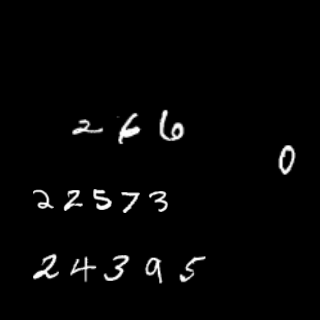 266
0
22573
24395